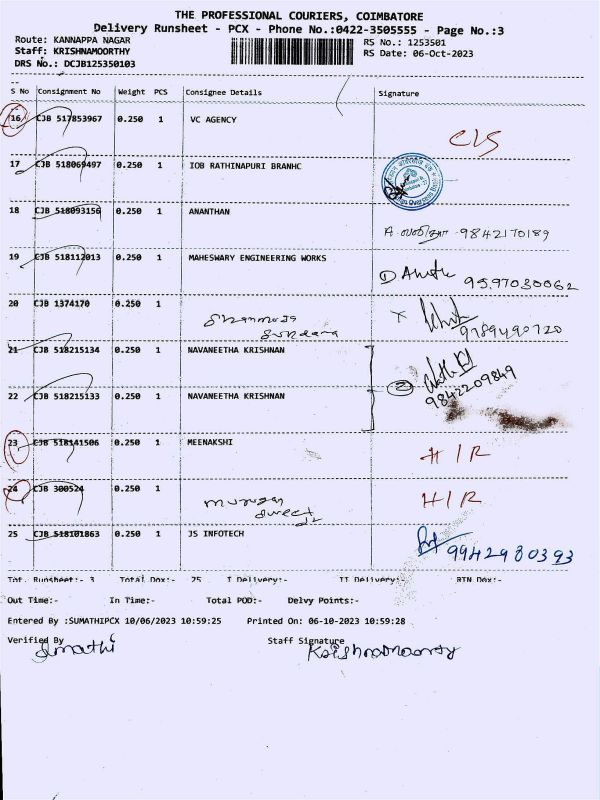 THE PROFESSIONAL COURIERS, COIMBATORE
Delivery Runsheet - PCX - Phone No.:0422-3505555 - Page No.:3
Route: KANNAPPA NAGAR
RS No.: 1253501
Staff: KRISHNAMOORTHY
RS Date: 06-Oct-2023
DRS No.: DCJB125350103
S No Consignment No Weight PCS Consignee Details Signature
16 CJB 517853967 0.250 1 VC AGENCY
17 CJB 518069497 0.250 1 IOB RATHINAPURI BRANHC
18 CJB 518093156 0.250 1 ANANTHAN
9842170189
19 CJB 518112013 0.250 1 MAHESWARY ENGINEERING WORKS
9597030062
20 CJB 1374170 0.250 1
Shanmuga
Sundara
9789490720
21 CJB 518215134 0.250 1 NAVANEETHA KRISHNAN
2
9842209849
22 CJB 518215133 0.250 1 NAVANEETHA KRISHNAN
23 CJB 518141506 0.250 1 MEENAKSHI
H/R
24 CJB 300524 0.250 1
murugan
sweet
H/R
25 CJB 518101863 0.250 1 JS INFOTECH
9942980393
Tot. Runsheet:- 3 Total Dox:- 25 I Delivery:- II Delivery:- RTN Dox:-
Out Time:- In Time:- Total POD:- Delvy Points:-
Entered By :SUMATHIPCX 10/06/2023 10:59:25 Printed On: 06-10-2023 10:59:28
Verified By Staff Signature
Sumathi Krishnamoorthy